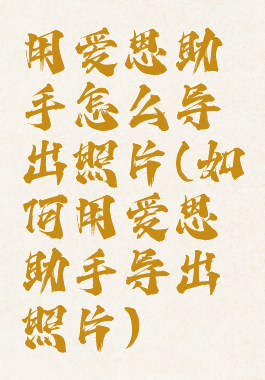 用爱思助
手怎么导
出照片(如
何用爱思
助手导出
照片)